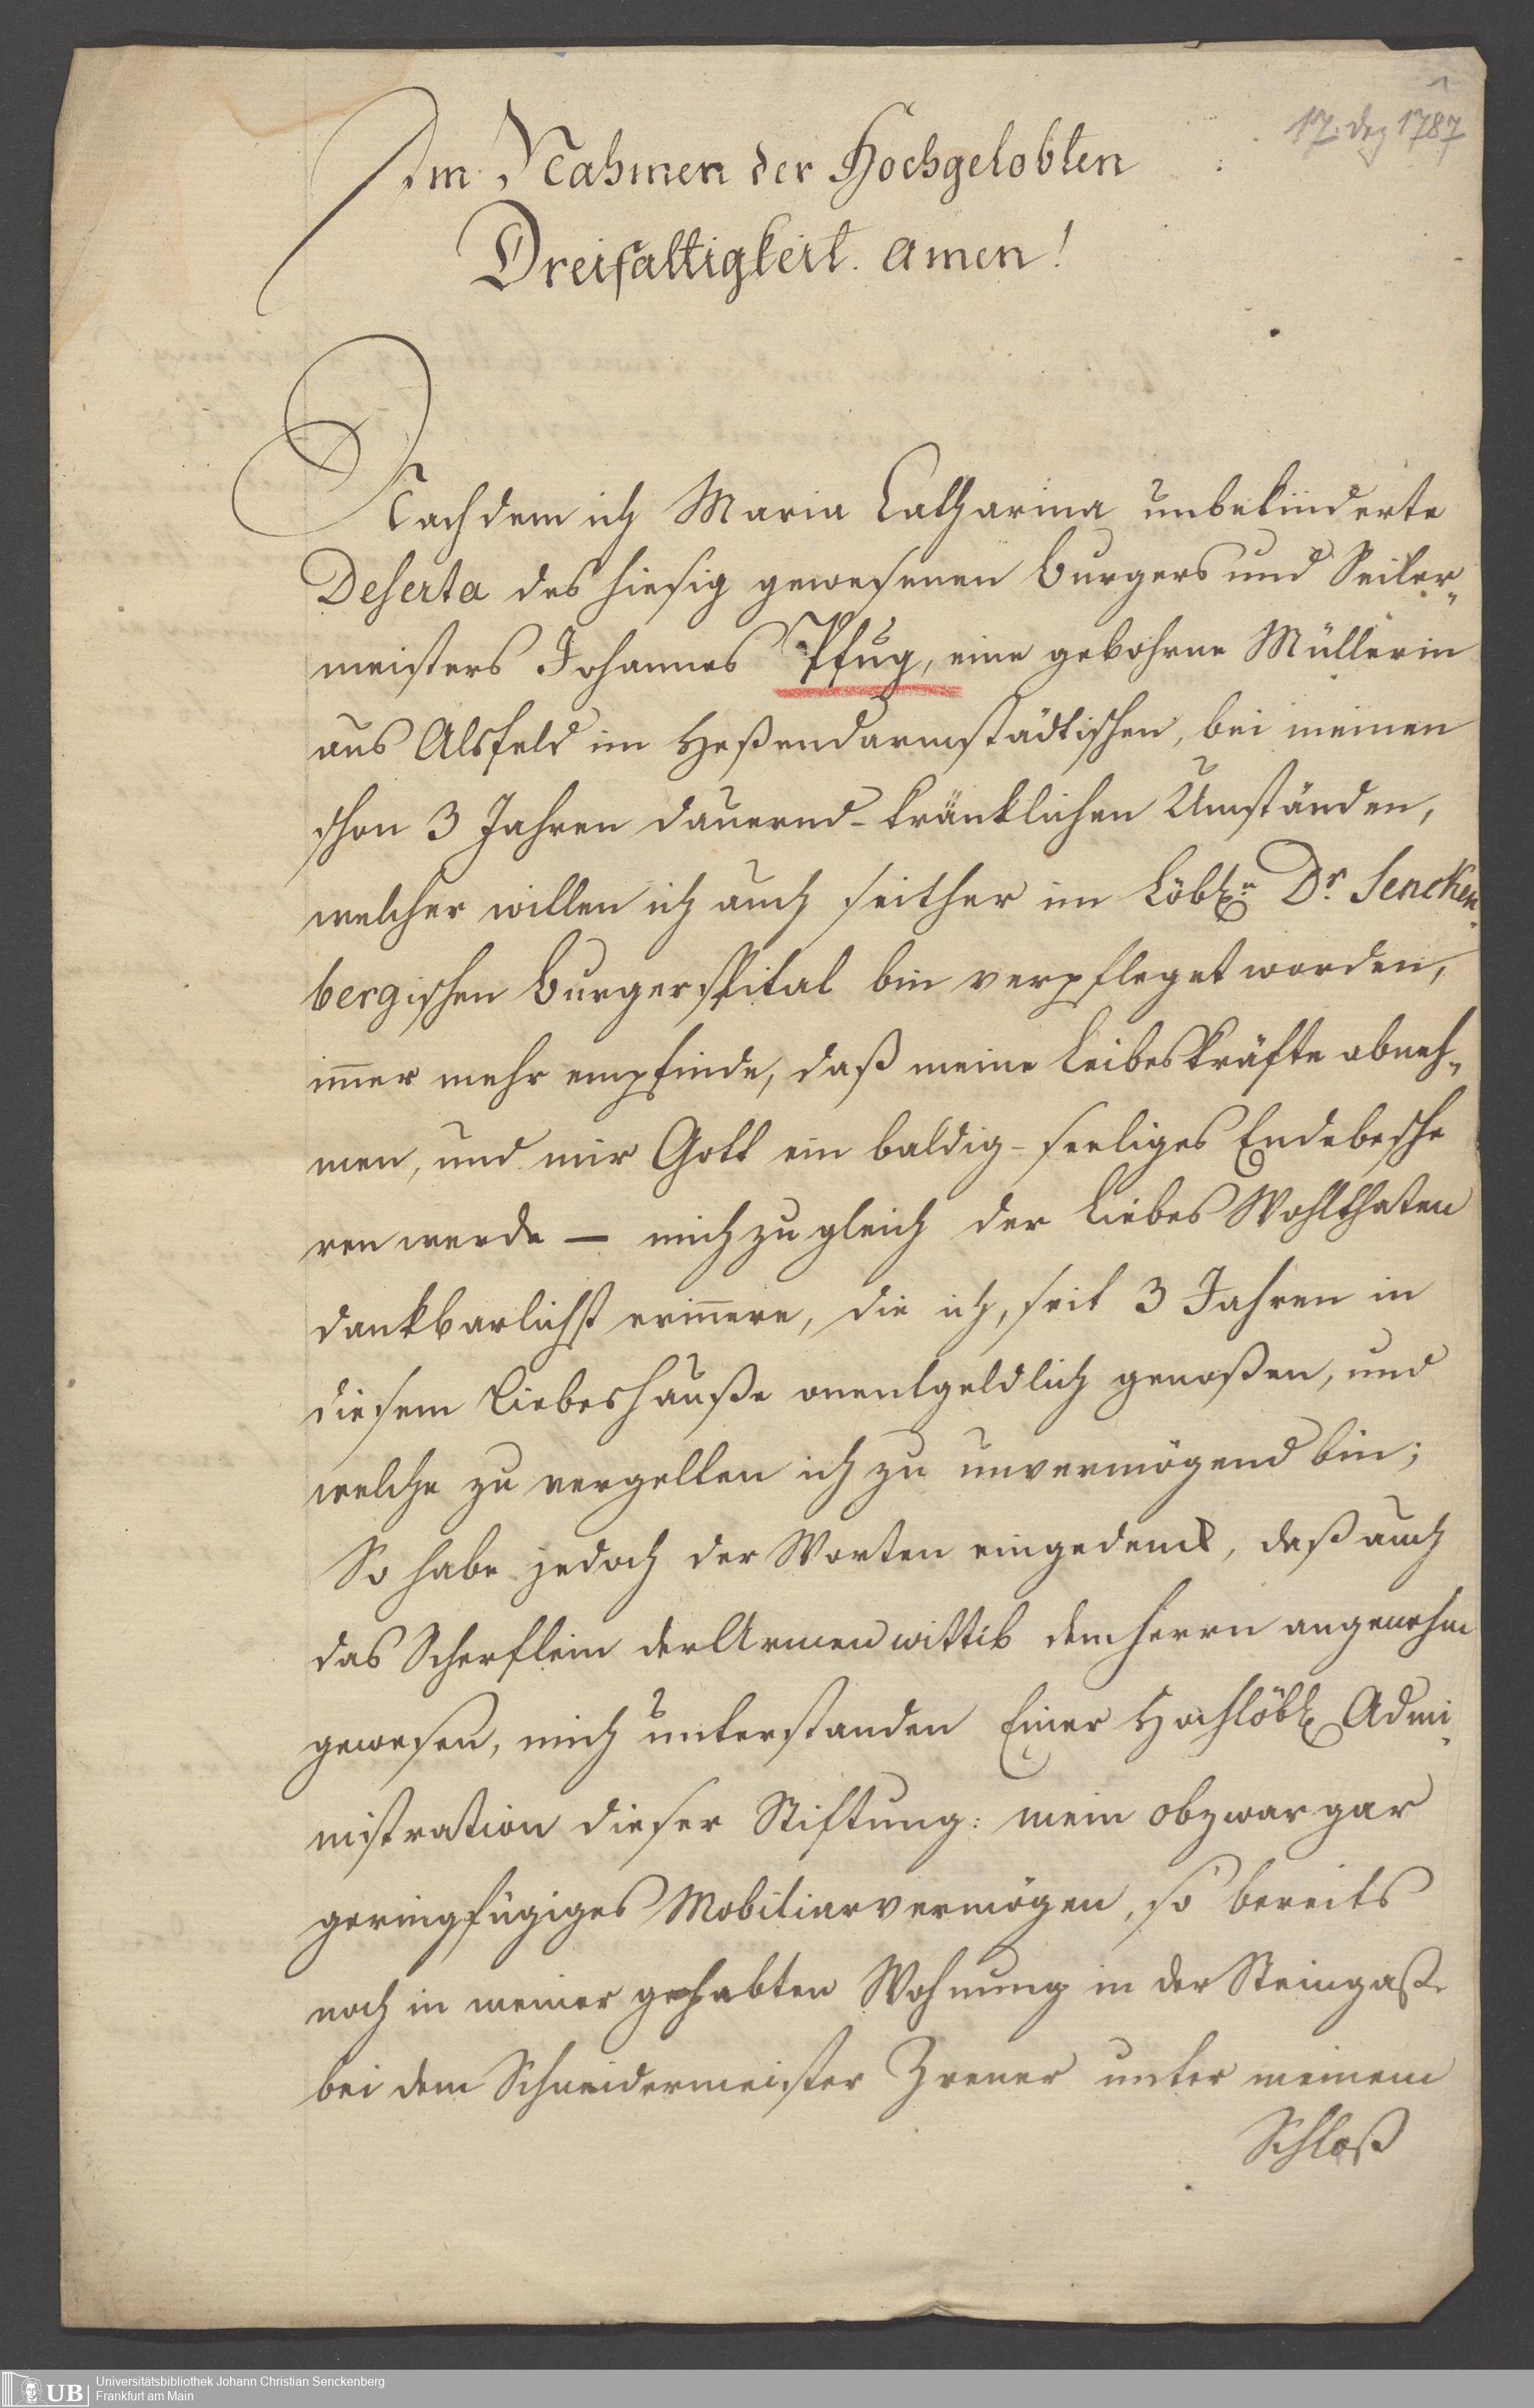 1
17. Dez 1787
Im Nahmen der Hochgelobten
Dreifaltigkeit. Amen!
Nachdem ich Maria Catharina unbekinderte
Deserta des hiesig gewesenen Burgers und Seiler„
meisters Johannes Pfug, eine gebohrne Müllerin
aus Alsfeld im Heßendarmstädtischen, bei meinen
schon 3 Jahren dauernd-kränklichen Umständen,
welcher willen ich auch seither im Löbl.n Dr. Sencken„
bergischen Burgerspital bin verpfleget worden,
im̄er mehr empfinde, daß meine Leibeskräfte abneh„
men, und mir Gott ein baldig-seeliges Ende besche
ren werde — mich zugleich der Liebes Wohlthaten
dankbarlichst erin̄ere, die ich, seit 3 Jahren in
diesem Liebeshauße onentgeldlich genoßen, und
welche zu vergelten ich zu unvermögend bin;
So habe jedoch der Worten eingedenck, daß auch
das Scherflein der Armen wittib dem Herrn angenehm
gewesen, mich unterstanden Einer Hochlöbl. Admi„
nistration dieser Stiftung: mein obzwar gar
geringfügiges Mobiliarvermögen, so bereits
noch in meiner gehabten Wohnung in der Steingaß
bei dem Schneidermeister unter meinem
Schloß
UB
Universitätsbibliothek Johann Christian Senckenberg
Frankfurt am Main